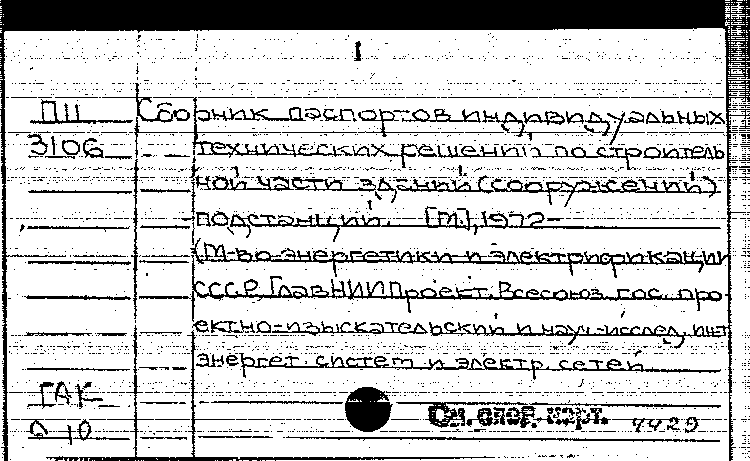 I
П11 Сборник паспортов индивидуальных
3106 технических решений по строитель
ной части зданий (сооружений)
подстанций. [М.], 1972-
(М-во энергетики и электрификации
СССР. ГлавНИИПроект. Всесоюз. гос. про-
ектно-изыскательский и науч.-исслед. инт
энергет. систем и электр. сетей
ГАК
О 10 См. след. карт. 4429